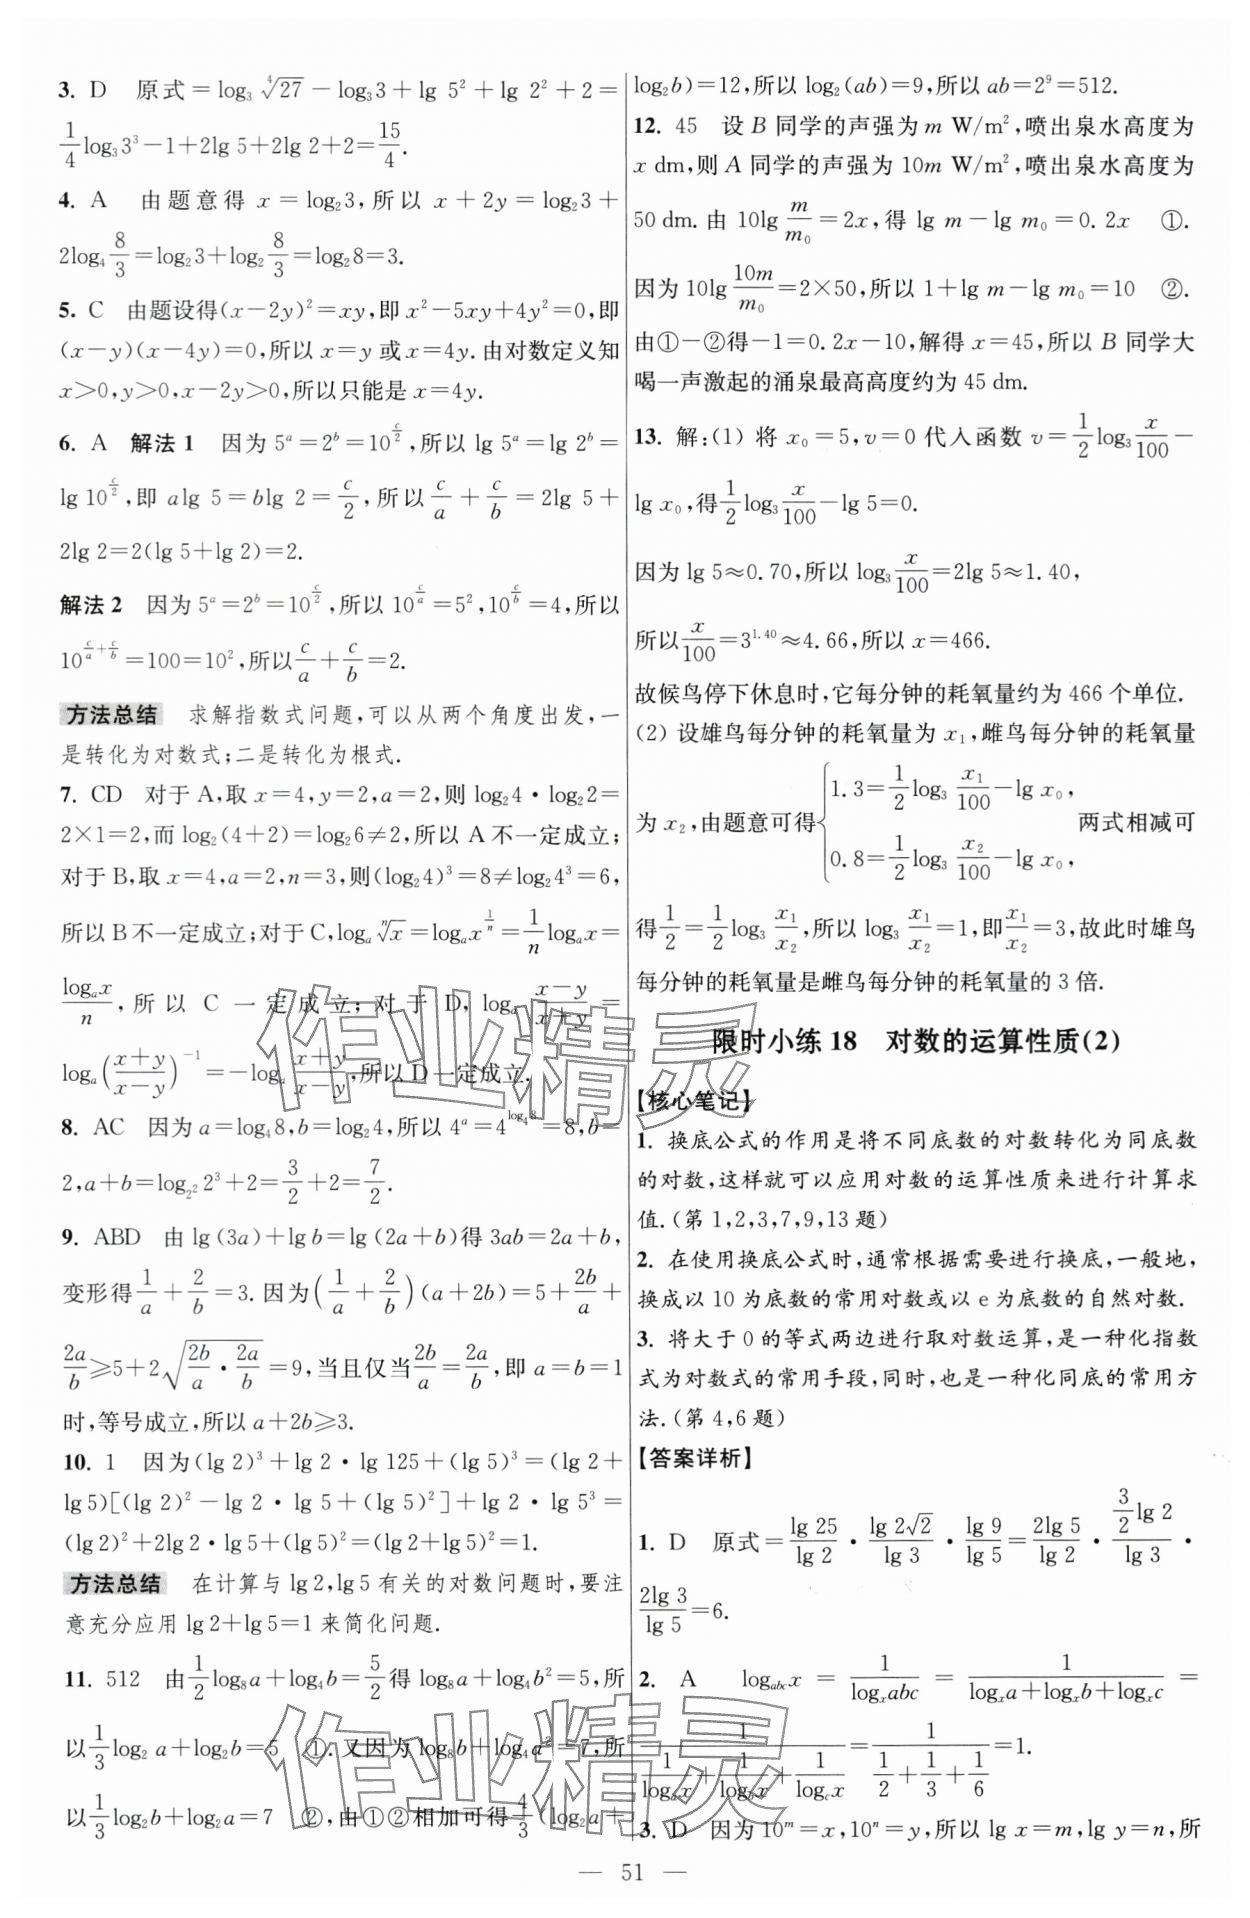 3. D 原式=log₃ ⁴√27 −log₃3+lg 5²+lg 2²+2=
1/4 log₃3³−1+2lg 5+2lg 2+2=15/4.
4. A 由题意得 x=log₂3,所以 x+2y=log₂3+
2log₄ 8/3=log₂3+log₂ 8/3=log₂8=3.
5. C 由题设得(x−2y)²=xy,即 x²−5xy+4y²=0,即
(x−y)(x−4y)=0,所以 x=y 或 x=4y.由对数定义知
x>0,y>0,x−2y>0,所以只能是 x=4y.
6. A 解法 1 因为 5^a=2^b=10^(c/2),所以 lg 5^a=lg 2^b=
lg 10^(c/2),即 alg 5=blg 2=c/2,所以 c/a+c/b=2lg 5+
2lg 2=2(lg 5+lg 2)=2.
解法 2 因为 5^a=2^b=10^(c/2),所以 10^(c/a)=5²,10^(c/b)=4,所以
10^(c/a+c/b)=100=10²,所以 c/a+c/b=2.
方法总结 求解指数式问题,可以从两个角度出发,一
是转化为对数式;二是转化为根式.
7. CD 对于 A,取 x=4,y=2,a=2,则 log₂4·log₂2=
2×1=2,而 log₂(4+2)=log₂6≠2,所以 A 不一定成立;
对于 B,取 x=4,a=2,n=3,则(log₂4)³=8≠log₂4³=6,
所以 B 不一定成立;对于 C,logₐ ⁿ√x=logₐx^(1/n)=1/n logₐx=
logₐx/n,所以 C 一定成立;对于 D,logₐ (x−y)/(x+y)=
logₐ((x+y)/(x−y))⁻¹=−logₐ (x+y)/(x−y),所以 D 一定成立.
8. AC 因为 a=log₄8,b=log₂4,所以 4^a=4^(log₄8)=8,b=
2,a+b=log_(2²) 2³+2=3/2+2=7/2.
9. ABD 由 lg(3a)+lg b=lg(2a+b)得 3ab=2a+b,
变形得 1/a+2/b=3.因为(1/a+2/b)(a+2b)=5+2b/a+
2a/b≥5+2√(2b/a·2a/b)=9,当且仅当 2b/a=2a/b,即 a=b=1
时,等号成立,所以 a+2b≥3.
10. 1 因为(lg 2)³+lg 2·lg 125+(lg 5)³=(lg 2+
lg 5)[(lg 2)²−lg 2·lg 5+(lg 5)²]+lg 2·lg 5³=
(lg 2)²+2lg 2·lg 5+(lg 5)²=(lg 2+lg 5)²=1.
方法总结 在计算与 lg 2,lg 5 有关的对数问题时,要注
意充分应用 lg 2+lg 5=1 来简化问题.
11. 512 由 1/2 log₈a+log₄b=5/2 得 log₈a+log₄b²=5,所
以 1/3 log₂ a+log₂b=5 ①.又因为 log₈b+log₄a²=7,所
以 1/3 log₂b+log₂a=7 ②,由①②相加可得 4/3 (log₂a+
log₂b)=12,所以 log₂(ab)=9,所以 ab=2⁹=512.
12. 45 设 B 同学的声强为 m W/m²,喷出泉水高度为
x dm,则 A 同学的声强为 10m W/m²,喷出泉水高度为
50 dm.由 10lg m/m₀=2x,得 lg m−lg m₀=0.2x ①.
因为 10lg 10m/m₀=2×50,所以 1+lg m−lg m₀=10 ②.
由①−②得−1=0.2x−10,解得 x=45,所以 B 同学大
喝一声激起的涌泉最高高度约为 45 dm.
13. 解:(1) 将 x₀=5,v=0 代入函数 v=1/2 log₃ x/100−
lg x₀,得 1/2 log₃ x/100−lg 5=0.
因为 lg 5≈0.70,所以 log₃ x/100=2lg 5≈1.40,
所以 x/100=3^1.40≈4.66,所以 x=466.
故候鸟停下休息时,它每分钟的耗氧量约为 466 个单位.
(2) 设雄鸟每分钟的耗氧量为 x₁,雌鸟每分钟的耗氧量
为 x₂,由题意可得{1.3=1/2 log₃ x₁/100−lg x₀, 0.8=1/2 log₃ x₂/100−lg x₀, 两式相减可
得 1/2=1/2 log₃ x₁/x₂,所以 log₃ x₁/x₂=1,即 x₁/x₂=3,故此时雄鸟
每分钟的耗氧量是雌鸟每分钟的耗氧量的 3 倍.
限时小练 18 对数的运算性质(2)
【核心笔记】
1. 换底公式的作用是将不同底数的对数转化为同底数
的对数,这样就可以应用对数的运算性质来进行计算求
值.(第 1,2,3,7,9,13 题)
2. 在使用换底公式时,通常根据需要进行换底,一般地,
换成以 10 为底数的常用对数或以 e 为底数的自然对数.
3. 将大于 0 的等式两边进行取对数运算,是一种化指数
式为对数式的常用手段,同时,也是一种化同底的常用方
法.(第 4,6 题)
【答案详析】
1. D 原式=lg 25/lg 2·lg 2√2/lg 3·lg 9/lg 5=2lg 5/lg 2·(3/2 lg 2)/lg 3·
2lg 3/lg 5=6.
2. A log_abc x=1/(logₓabc)=1/(logₓa+logₓb+logₓc)=
1/(1/logₐx+1/log_b x+1/log_c x)=1/(1/2+1/3+1/6)=1.
3. D 因为 10^m=x,10^n=y,所以 lg x=m,lg y=n,所
— 51 —
作业精灵
作业精灵